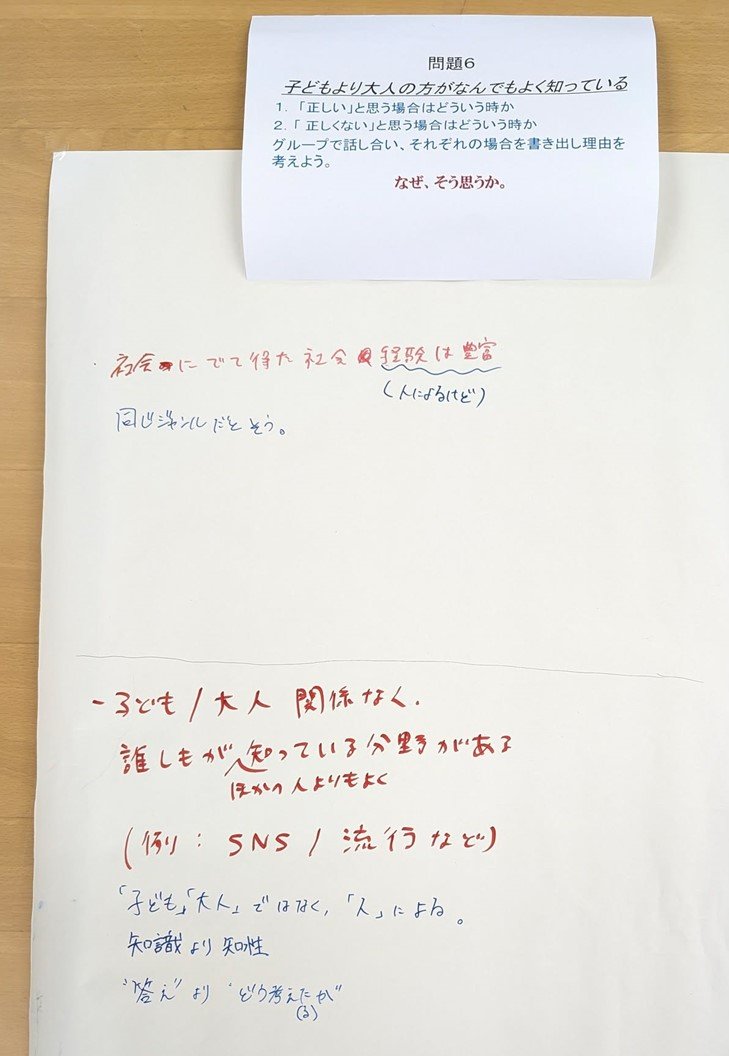 問題６
子どもより大人の方がなんでもよく知っている
１．「正しい」と思う場合はどういう時か
２．「 正しくない」と思う場合はどういう時か
グループで話し合い、それぞれの場合を書き出し理由を
考えよう。
なぜ、そう思うか。
・社会にでて得た社会経験は豊富
(人によるけど)
同じジャンルだとそう。
- 子ども / 大人 関係なく.
誰しもが知っている分野がある
ほかの人よりもよく
(例: SNS / 流行など)
「子ども」「大人」ではなく,「人」による。
知識より知性
"答え"より "どう考えたか"
(る)